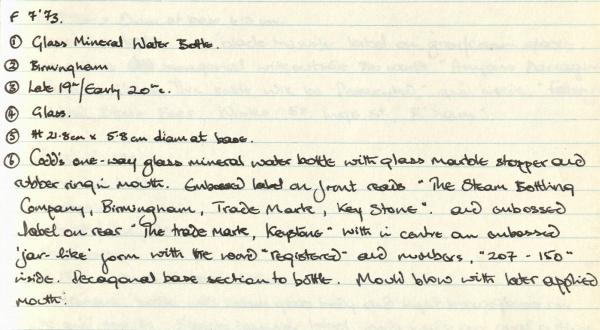 F 7'73.
① Glass Mineral Water Bottle.
② Birmingham
③ Late 19th/Early 20th c.
④ Glass.
⑤ Ht 21.8cm x 5.8cm diam at base.
⑥ Codd's one-way glass mineral water bottle with glass marble stopper and
rubber ring in mouth. Embossed label on front reads "The Steam Bottling
Company, Birmingham, Trade Mark, Key Stone". and embossed
label on rear "The trade mark, Keystone" with in centre an embossed
'jar-like' form with the word "Registered" and numbers, "207 - 150"
inside. Decagonal base section to bottle. Mould blow with later applied
mouth.